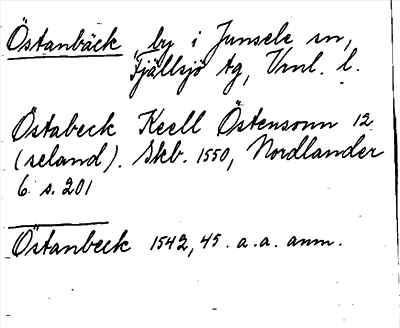 Östanbäck, by i Junsele sn,
Fjällsjö tg, Vnl. l.
Östabeck Keell Östensonn 12
(seland). Skb. 1550, Nordlander
6 s. 201
Östanbeck 1542, 45. a. a. anm.